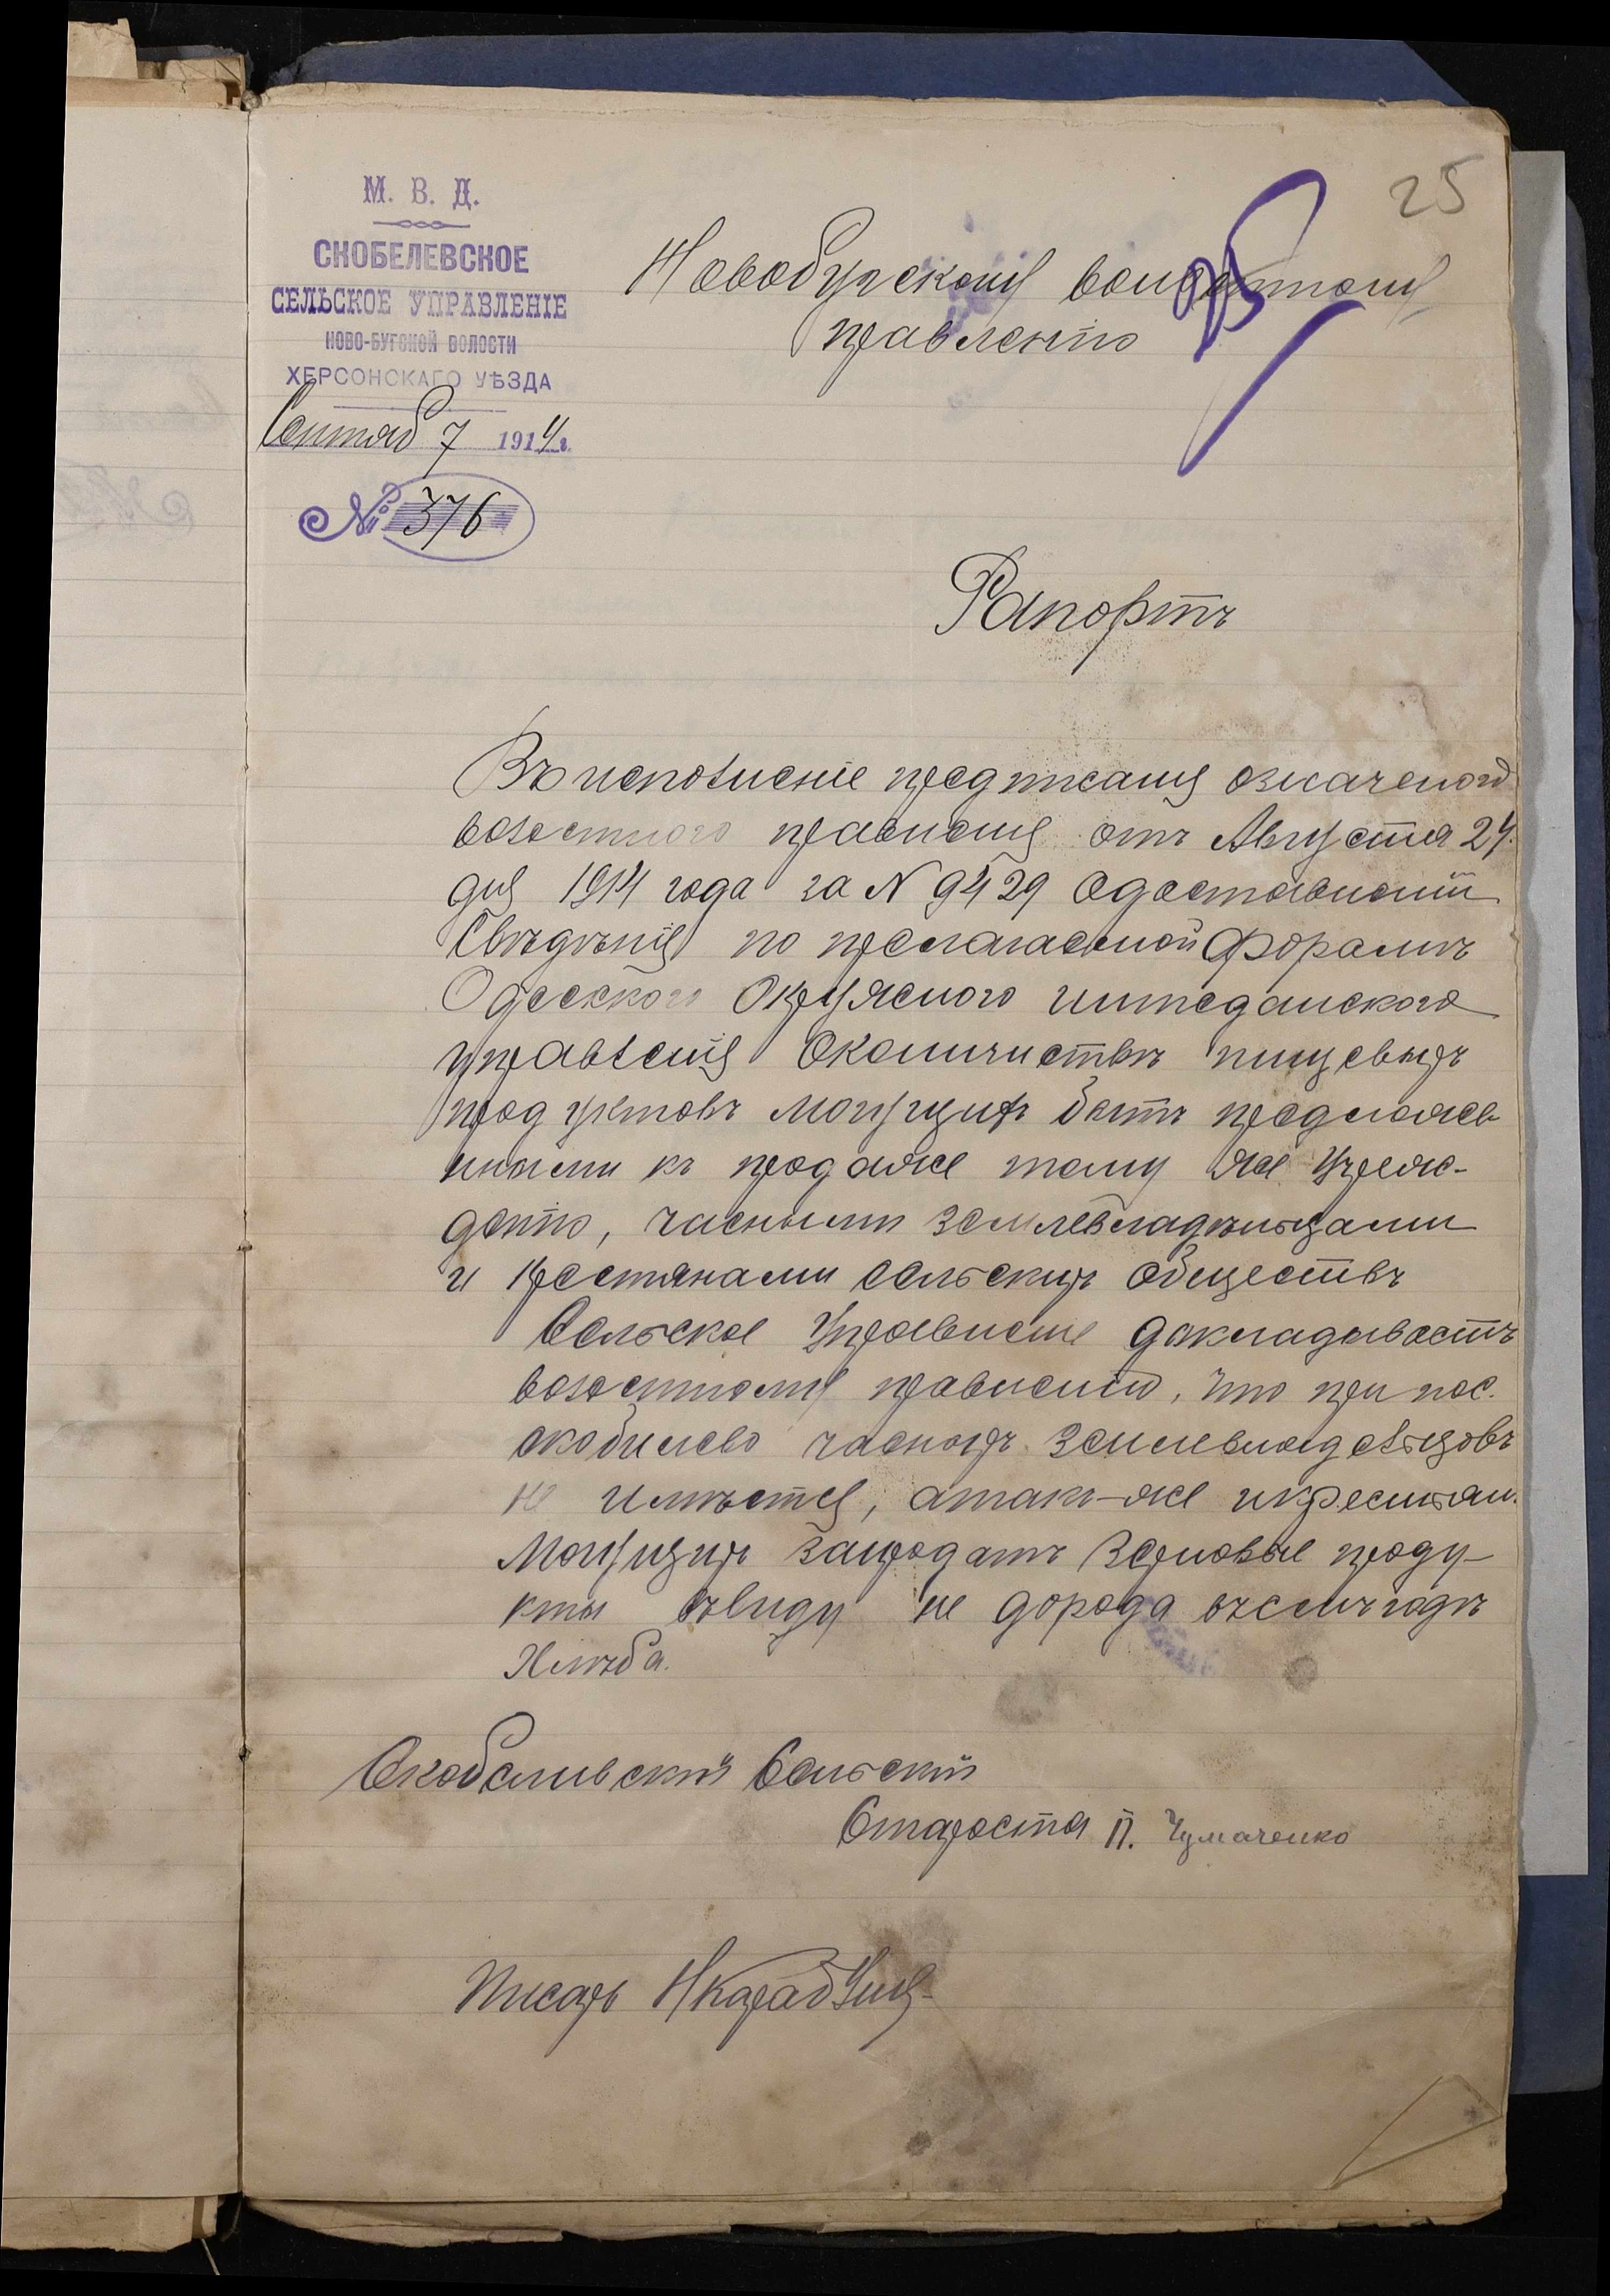 25
М. В. Д.
СКОБЕЛЕВСКОЕ
СЕЛЬСКОЕ УПРАВЛЕНІЕ
НОВО-БУГСКОЙ ВОЛОСТИ
ХЕРСОНСКАГО УѢЗДА
Сентяб 7 1914 г.
№ 376
Новобугскому волостному
правленію
Рапортъ
Въ исполненіе предписанія означеного
волостного правленія отъ Августа 24
дня 1914 года за N 9429 одоставленіи
Свѣдѣнія по прелагаемой формѣ
Одесского Окружного интеданского
управленія Околичествѣ пищевыхъ
продуктовъ могущихъ быть предложен
ными къ продаже тому же Учреж-
денію, часными землевладѣльцами
и крестянами сельскихъ обществъ
Сельское Управленіе докладываетъ
волостному правленію, что при пос.
скобилево часныхъ землевладельцовъ
не имѣется, атакъ-же икрестьян.
Могущихъ запродать Зерновые проду-
кты ввиду не дорода всемъ годѣ
Хлѣба.
Скобеливскій Сельскій
Староста П. Чумаченко
Писарь